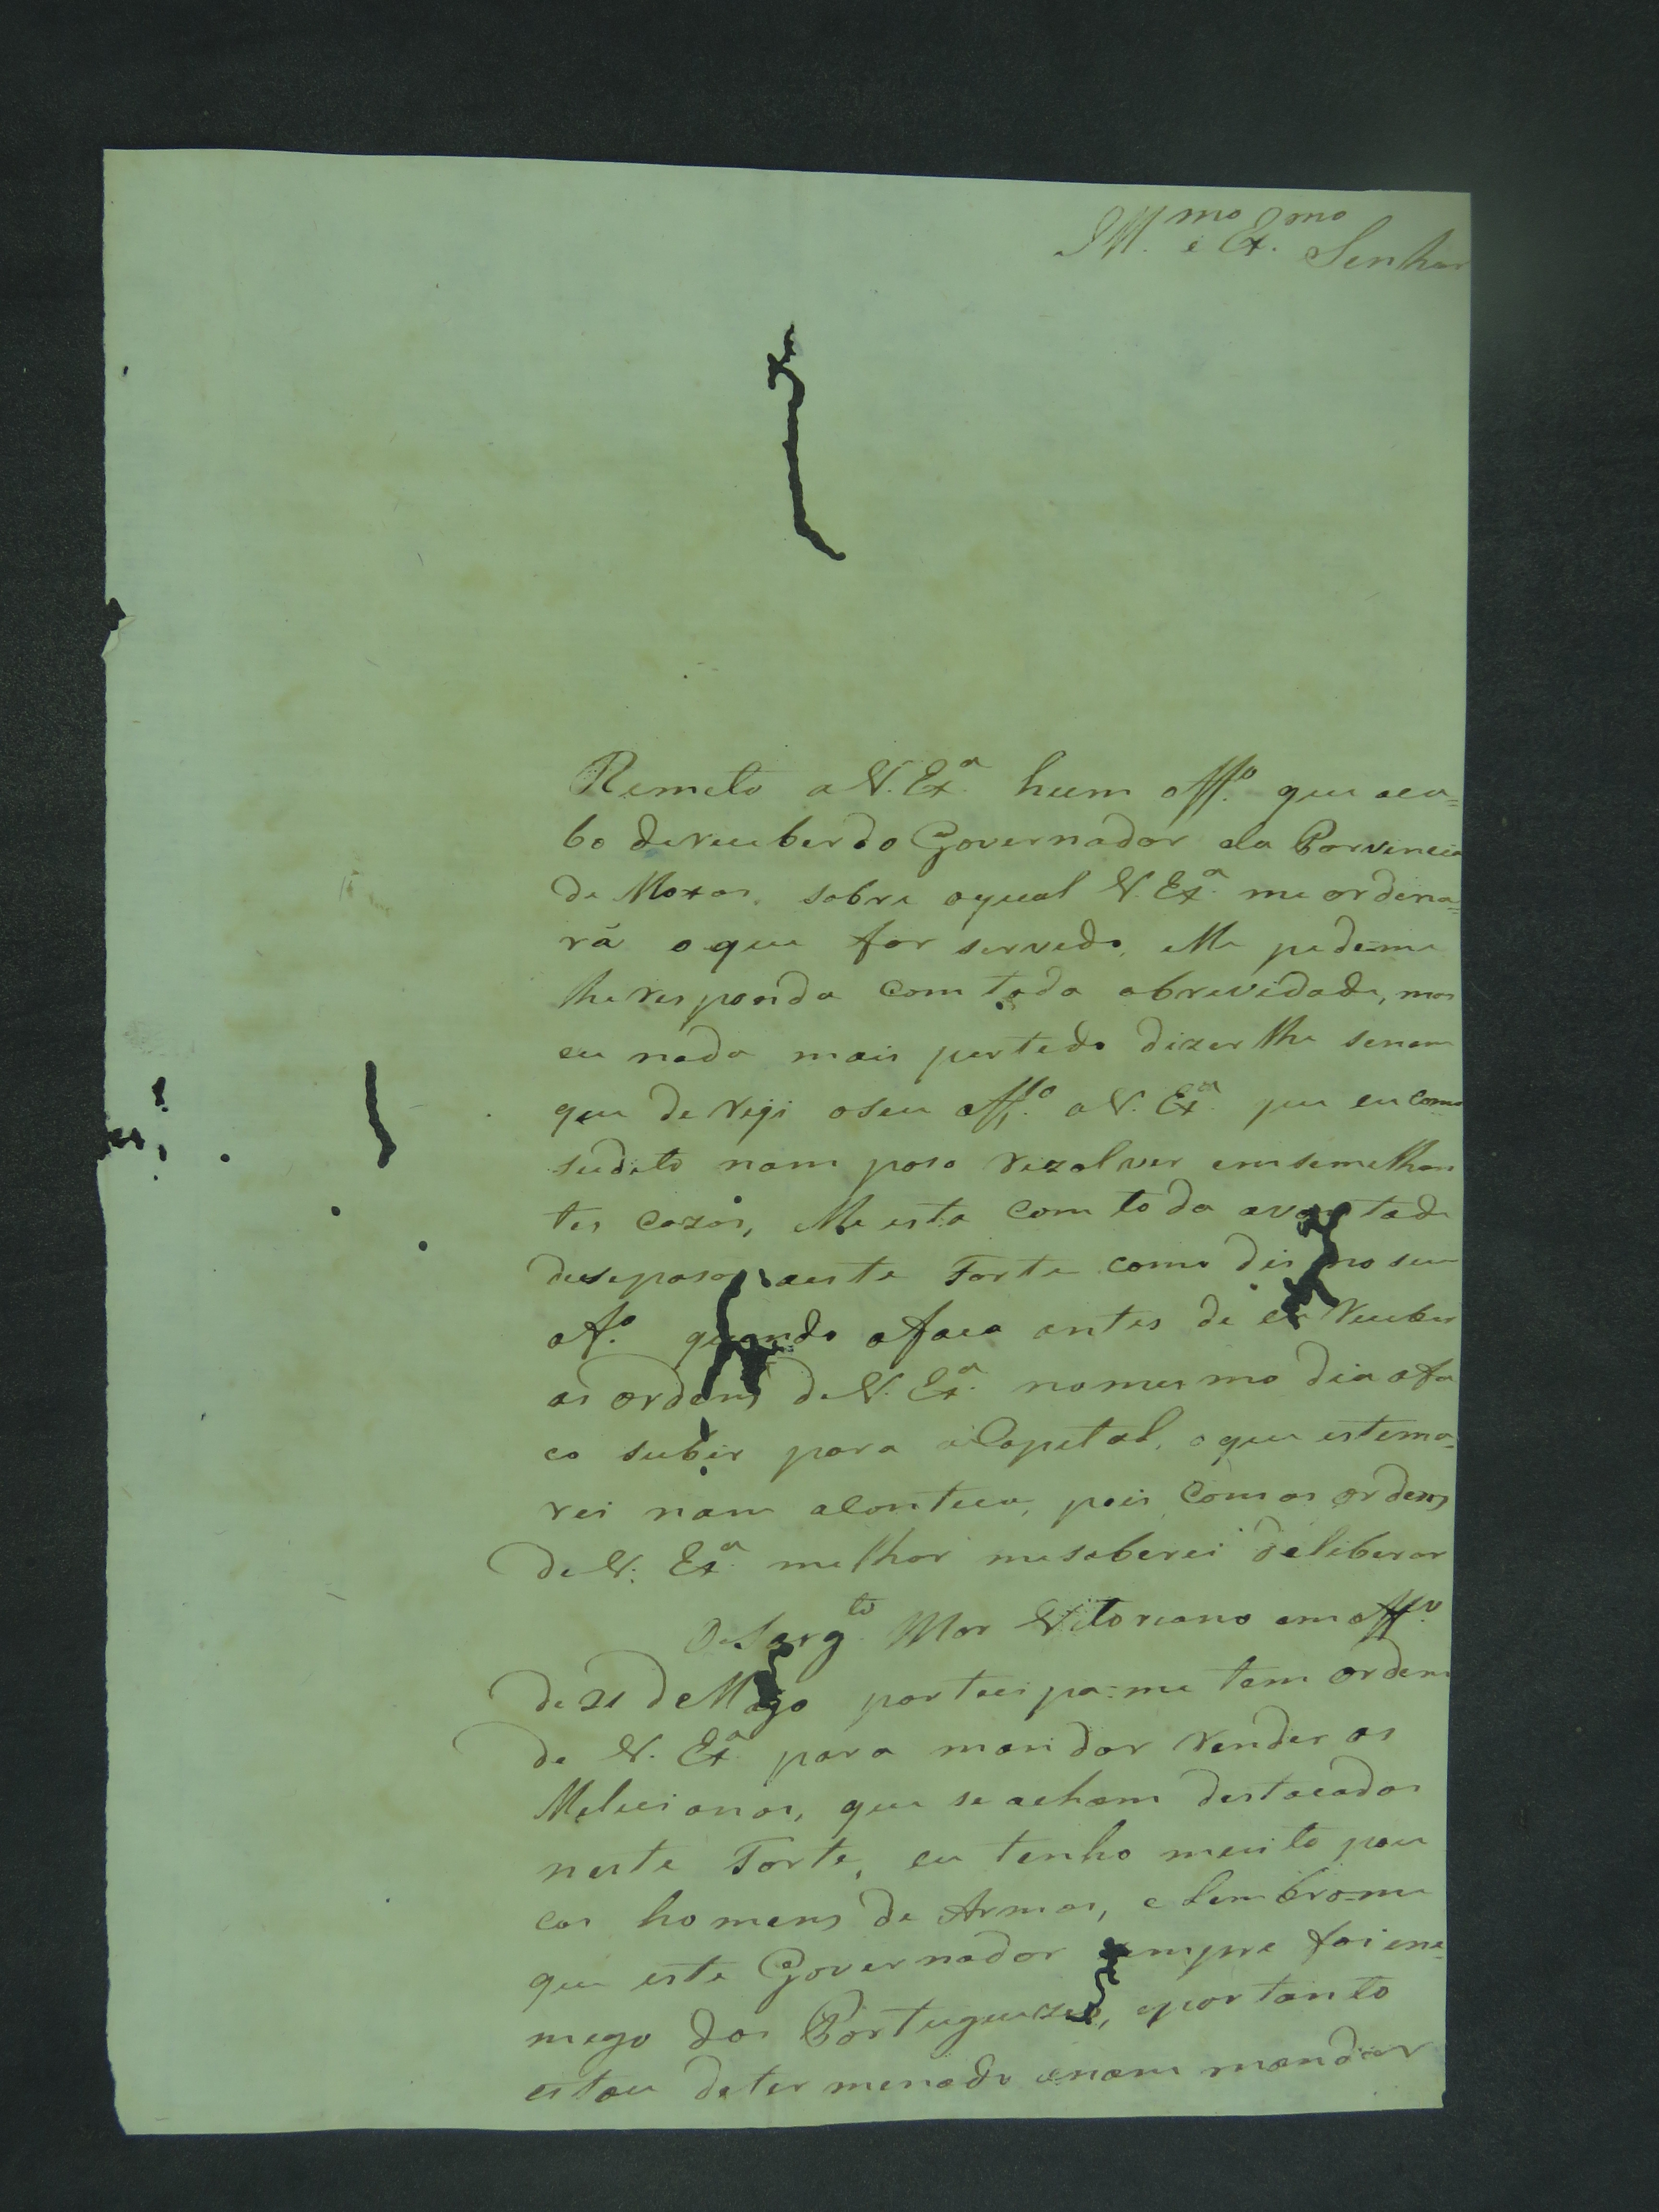 Ill.mo e Ex.mo Senhor
Remeto a V. Ex.a hum off.o que aca=
bo de reuber do Governador da Porvincia
de Moxos, sobre o qual V. Ex.a me ordena=
rá o que for servido, elle pede=me
lhe responda com toda abrevidade, mas
eu nada mais pertedo dizer lhe senam
que derigi o seu off.o a V. Ex.a que eu como
sudito nam poso rezolver em semelhan
tes cazos, elle esta com toda avontade
deseposo aeste Forte como dis no seu
of.o quando afaca antes de eu reuber
as ordens de V. Ex.a nomesmo dia ofa
co subir para aCapital, oque estema=
rei nam aConteca, pois com as ordens
de V. Ex.a melhor mesaberei deliberar
O Sarg.to Mor Vitoriano em off.o
de 21 de Mayo partecipa=me tem ordem
de V. Ex.a para mandar render os
Melicianos, que se acham destacados
neste Forte, eu tenho muito pou
cos homens de Armas, e lembro=me
que este Governador sempre foi ene=
mego dos Portuguezes, eportanto
estou determenado anam mandar